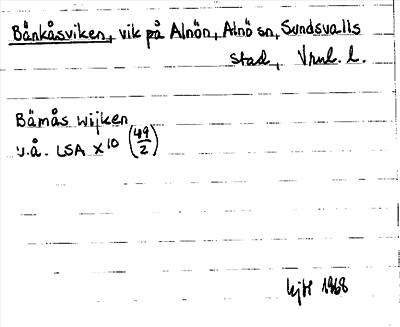 Bänkåsviken, vik på Alnön, Alnö sn, Sundsvalls
stad, Vrnl. l.
Bämås wijken
u.å. LSA X10 (49/2)
1968